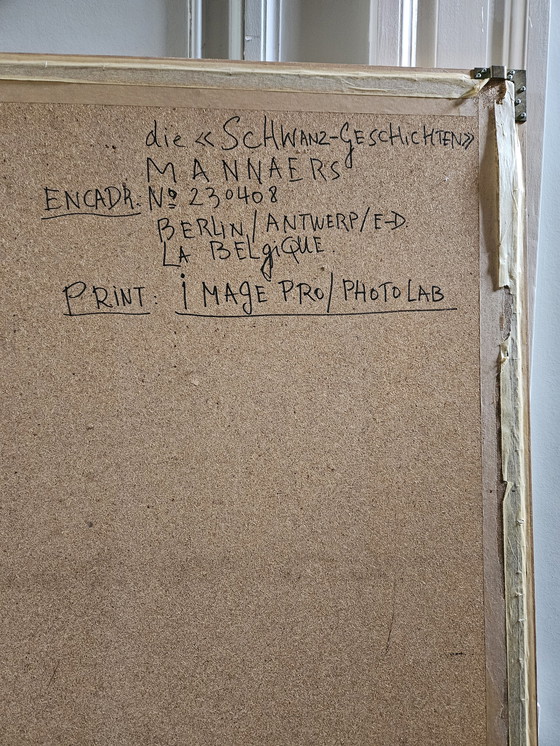 die « SCHWANZ-GESCHICHTEN »
MANNAERS
ENCADR. Nº 230408
BERLIN/ANTWERP/E-D.
LA BELgiQUE.
PRINT: iMAgE PRO/PHOTOLAB